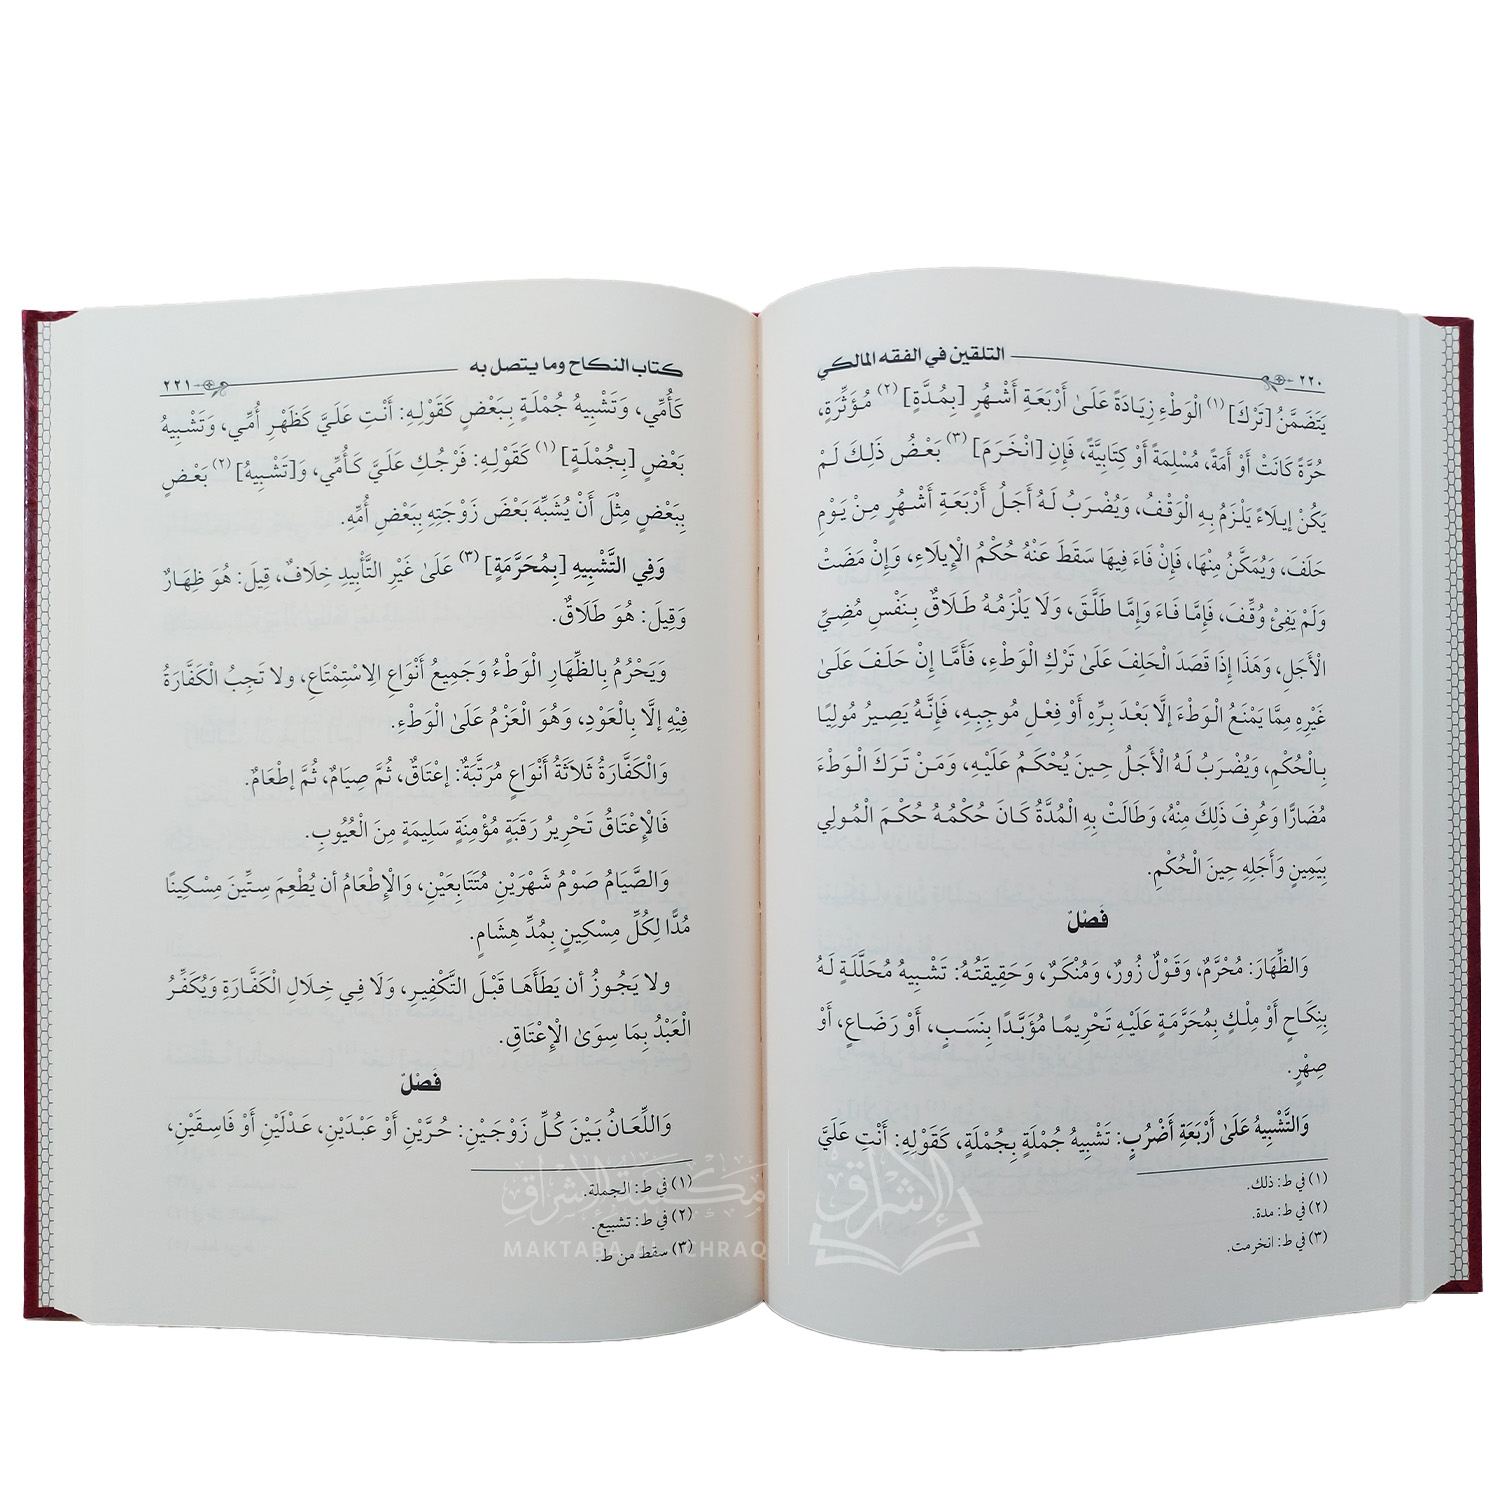 ٢٢٠ التلقين في الفقه المالكي
يَتَضَمَّنُ [تَرْكَ] (١) الْوَطْءِ زِيَادَةً عَلَىٰ أَرْبَعَةِ أَشْهُرٍ [بِمُدَّةٍ] (٢) مُؤَثِّرَةٍ،
حُرَّةً كَانَتْ أَوْ أَمَةً، مُسْلِمَةً أَوْ كِتَابِيَّةً، فَإِنِ [انْخَرَمَ] (٣) بَعْضُ ذَلِكَ لَمْ
يَكُنْ إيلَاءً يَلْزَمُ بِهِ الْوَقْفُ، وَيُضْرَبُ لَهُ أَجَلُ أَرْبَعَةِ أَشْهُرٍ مِنْ يَوْمِ
حَلَفَ، وَيُمَكَّنُ مِنْهَا، فَإِنْ فَاءَ فِيهَا سَقَطَ عَنْهُ حُكْمُ الْإِيلَاءِ، وَإِنْ مَضَتْ
وَلَمْ يَفِئْ وُقِّفَ، فَإِمَّا فَاءَ وَإِمَّا طَلَّقَ، وَلَا يَلْزَمُهُ طَلَاقٌ بِنَفْسِ مُضِيِّ
الْأَجَلِ، وَهَذَا إِذَا قَصَدَ الْحَلِفَ عَلَىٰ تَرْكِ الْوَطْءِ، فَأَمَّا إِنْ حَلَفَ عَلَىٰ
غَيْرِهِ مِمَّا يَمْنَعُ الْوَطْءَ إلَّا بَعْدَ بِرِّهِ أَوْ فِعْلِ مُوجِبِهِ، فَإِنَّهُ يَصِيرُ مُولِيًا
بِالْحُكْمِ، وَيُضْرَبُ لَهُ الْأَجَلُ حِينَ يُحْكَمُ عَلَيْهِ، وَمَنْ تَرَكَ الْوَطْءَ
مُضَارًّا وَعُرِفَ ذَلِكَ مِنْهُ، وَطَالَتْ بِهِ الْمُدَّةُ كَانَ حُكْمُهُ حُكْمَ الْمُولِي
بِيَمِينٍ وَأَجَلِهِ حِينَ الْحُكْمِ.
فَصْلٌ
وَالظِّهَارَ: مُحْرَّمٌ، وَقَوْلٌ زُورٌ، وَمُنْكَرٌ، وَحَقِيقَتُهُ: تَشْبِيهُ مُحَلَّلَةٍ لَهُ
بِنِكَاحٍ أَوْ مِلْكٍ بِمُحَرَّمَةٍ عَلَيْهِ تَحْرِيمًا مُؤَبَّدًا بِنَسَبٍ، أَوْ رَضَاعٍ، أَوْ
صِهْرٍ.
وَالتَّشْبِيهُ عَلَىٰ أَرْبَعَةِ أَضْرُبٍ: تَشْبِيهُ جُمْلَةٍ بِجُمْلَةٍ، كَقَوْلِهِ: أَنْتِ عَلَيَّ
(١) في ط: ذلك.
(٢) في ط: مدة.
(٣) في ط: انخرمت.
كتاب النكاح وما يتصل به ٢٢١
كَأُمِّي، وَتَشْبِيهُ جُمْلَةٍ بِبَعْضٍ كَقَوْلِهِ: أَنْتِ عَلَيَّ كَظَهْرِ أُمِّي، وَتَشْبِيهُ
بَعْضٍ [بِجُمْلَةٍ] (١) كَقَوْلِهِ: فَرْجُكِ عَلَيَّ كَأُمِّي، وَ[تَشْبِيهُ] (٢) بَعْضٍ
بِبَعْضٍ مِثْلَ أَنْ يُشَبِّهَ بَعْضَ زَوْجَتِهِ بِبَعْضِ أُمِّهِ.
وَفِي التَّشْبِيهِ [بِمُحَرَّمَةٍ] (٣) عَلَىٰ غَيْرِ التَّأْبِيدِ خِلَافٌ، قِيلَ: هُوَ ظِهَارٌ
وَقِيلَ: هُوَ طَلَاقٌ.
وَيَحْرُمُ بِالظِّهَارِ الْوَطْءُ وَجَمِيعُ أَنْوَاعِ الِاسْتِمْتَاعِ، ولا تَجِبُ الْكَفَّارَةُ
فِيْهِ إلَّا بِالْعَوْدِ، وَهُوَ الْعَزْمُ عَلَىٰ الْوَطْءِ.
وَالْكَفَّارَةُ ثَلَاثَةُ أَنْوَاعٍ مُرَتَّبَةٌ: إعْتَاقٌ، ثُمَّ صِيَامٌ، ثُمَّ إطْعَامٌ.
فَالْإِعْتَاقُ تَحْرِيرُ رَقَبَةٍ مُؤْمِنَةٍ سَلِيمَةٍ مِنَ الْعُيُوبِ.
وَالصَّيَامُ صَوْمُ شَهْرَيْنِ مُتَتَابِعَيْنِ، وَالْإِطْعَامُ أن يُطْعِمَ سِتِّينَ مِسْكِينًا
مُدًّا لِكُلِّ مِسْكِينٍ بِمُدِّ هِشَامٍ.
ولا يَجُوزُ أن يَطَأَهَا قَبْلَ التَّكْفِيرِ، وَلَا فِي خِلَالِ الْكَفَّارَةِ وَيُكَفِّرُ
الْعَبْدُ بِمَا سِوَىٰ الْإِعْتَاقِ.
فَصْلٌ
وَاللِّعَانُ بَيْنَ كُلِّ زَوْجَيْنِ: حُرَّيْنِ أَوْ عَبْدَيْنِ، عَدْلَيْنِ أَوْ فَاسِقَيْنِ،
(١) في ط: الجملة.
(٢) في ط: تشبيع.
(٣) سقط من ط.
مكتبة الإشراق
MAKTABA AL ICHRAQ
الإشراق